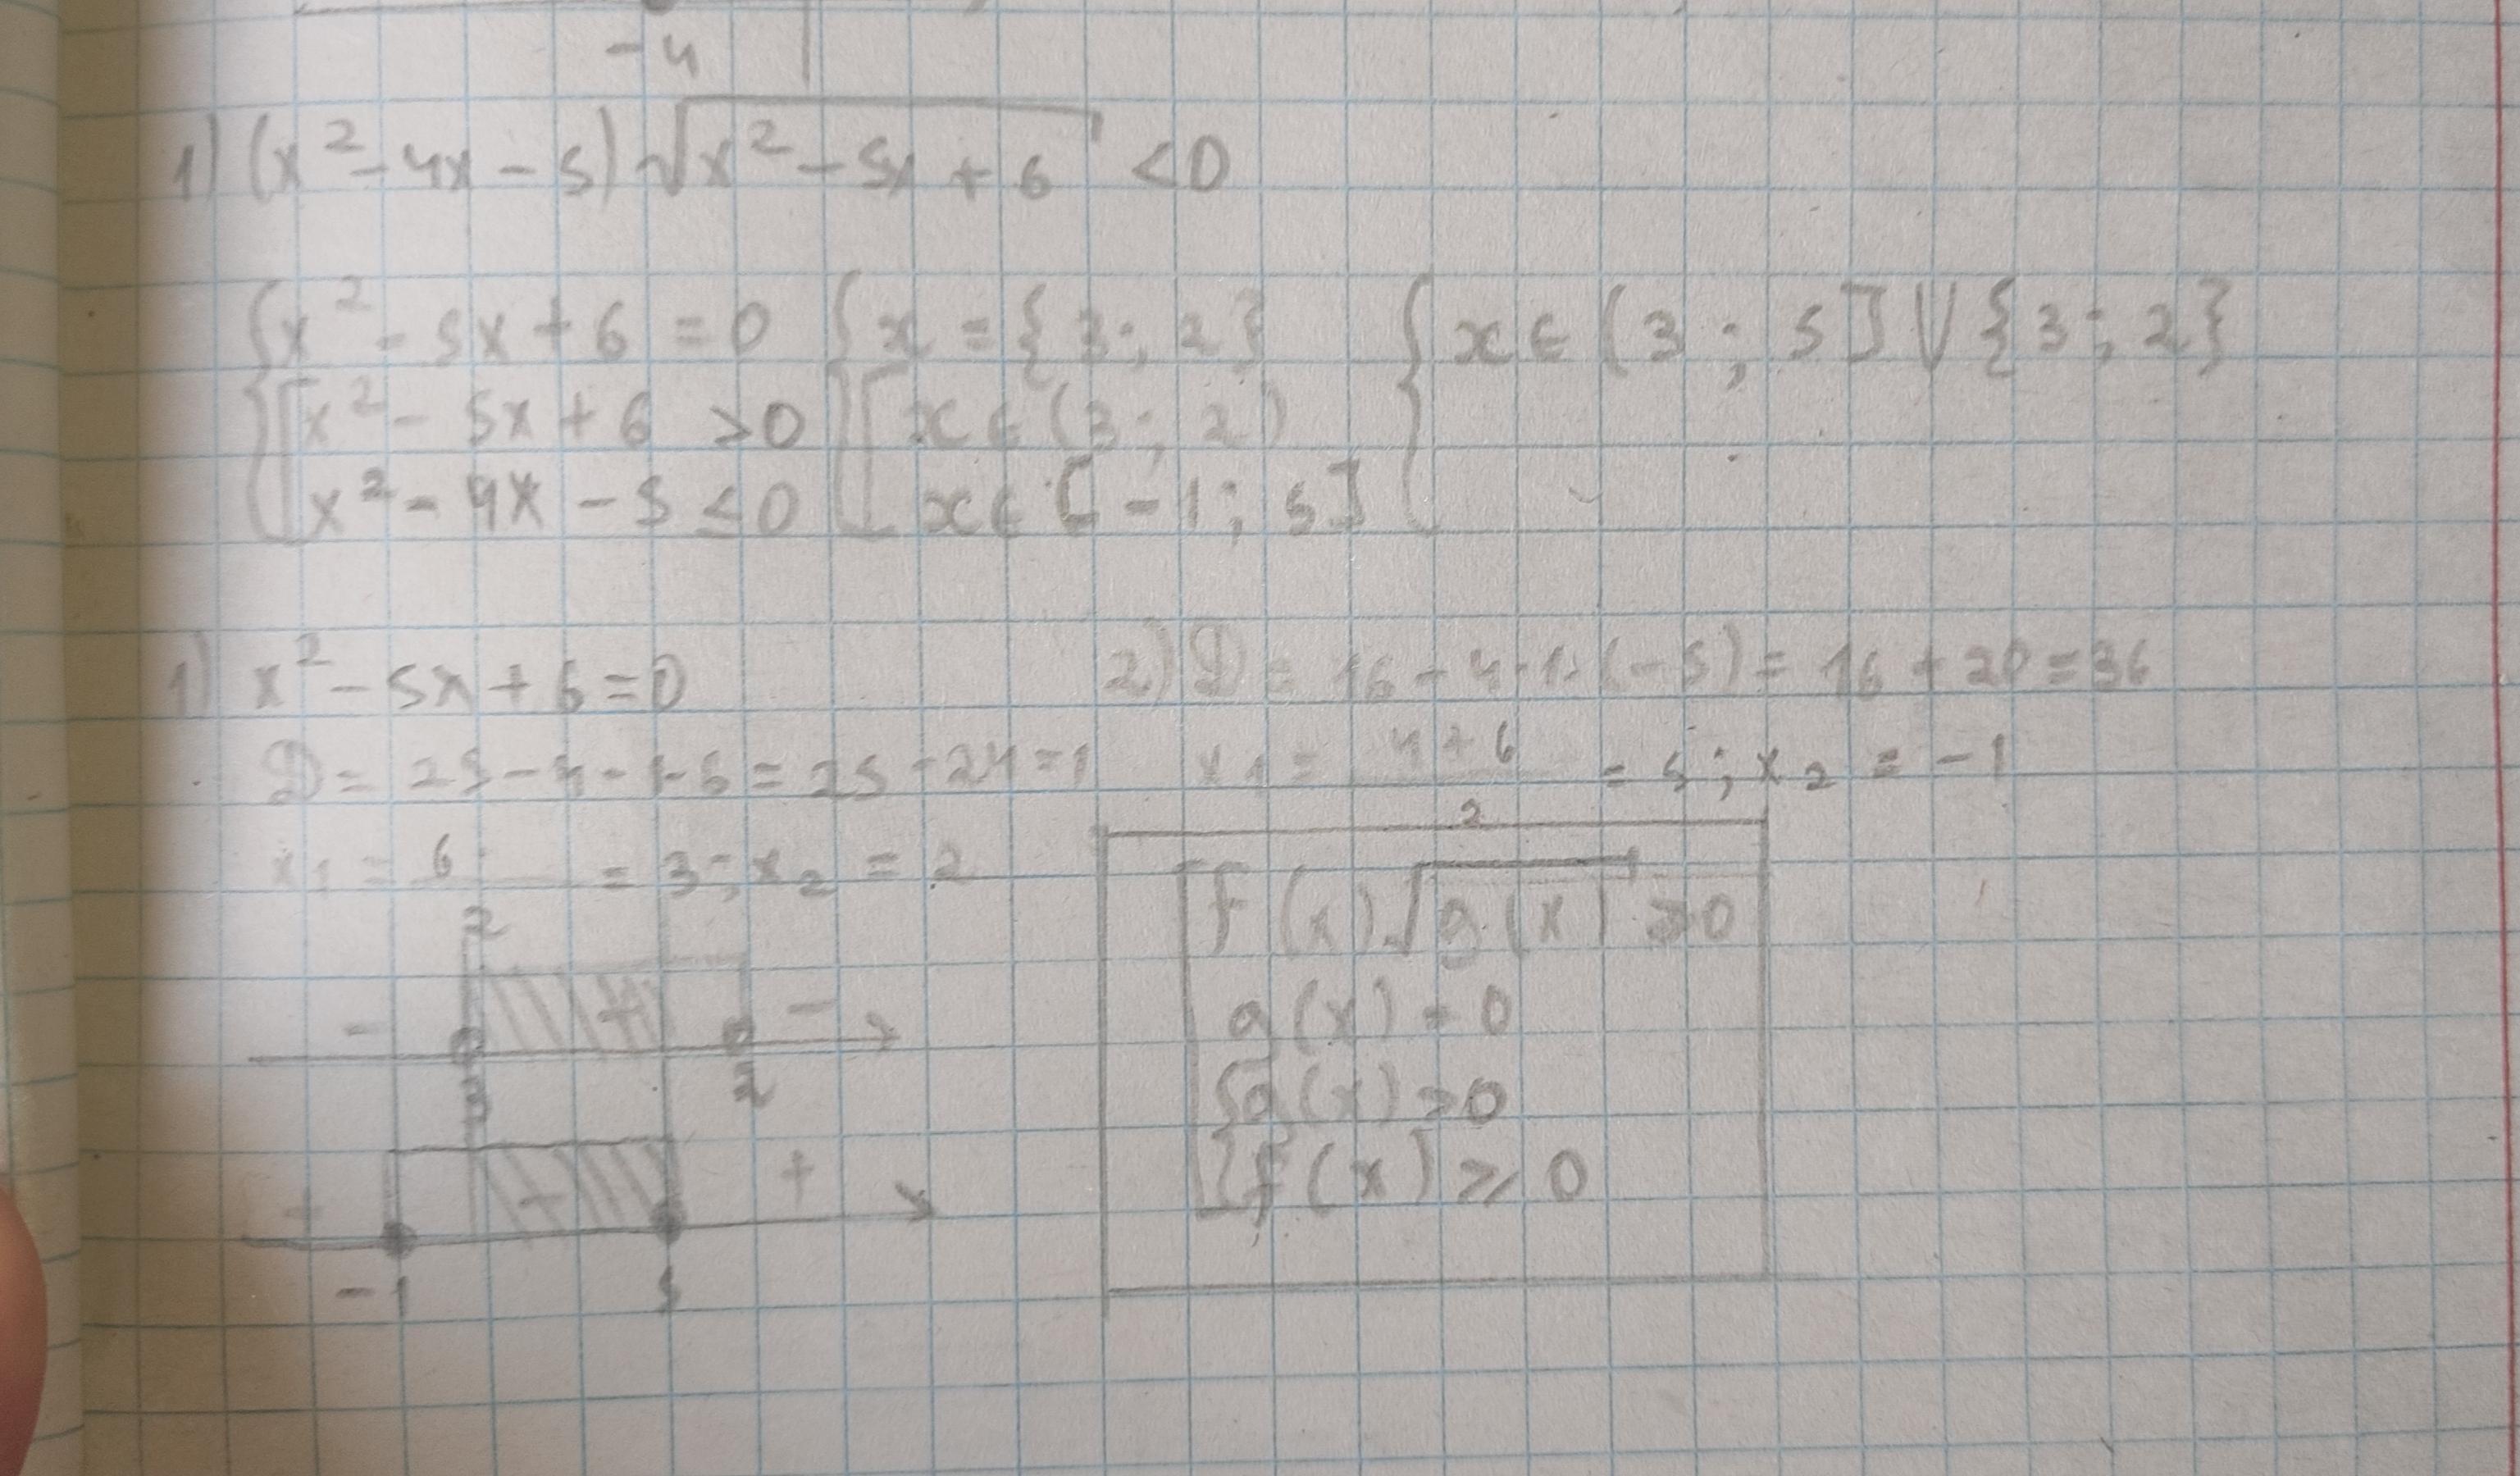 -4
1) (x² - 4x - 5) √(x² - 5x + 6) < 0
{ x² - 5x + 6 = 0 { x = {3; 2} { x ∈ (3; 5] ∪ {3; 2}
[ x² - 5x + 6 > 0 [ x ∈ (3; 2)
x² - 4x - 5 ≤ 0 x ∈ [-1; 5]
1) x² - 5x + 6 = 0
D = 25 - 4 · 1 · 6 = 25 - 24 = 1
x₁ = 6/ = 3; x₂ = 2
2) D = 16 - 4 · 1 · (-5) = 16 + 20 = 36
x₁ = (4 + 6)/2 = 5; x₂ = -1
2
- + -
3 2
+ - +
-1 5
[ f(x) √g(x) ≥ 0
g(x) = 0
{ g(x) > 0
f(x) ≥ 0